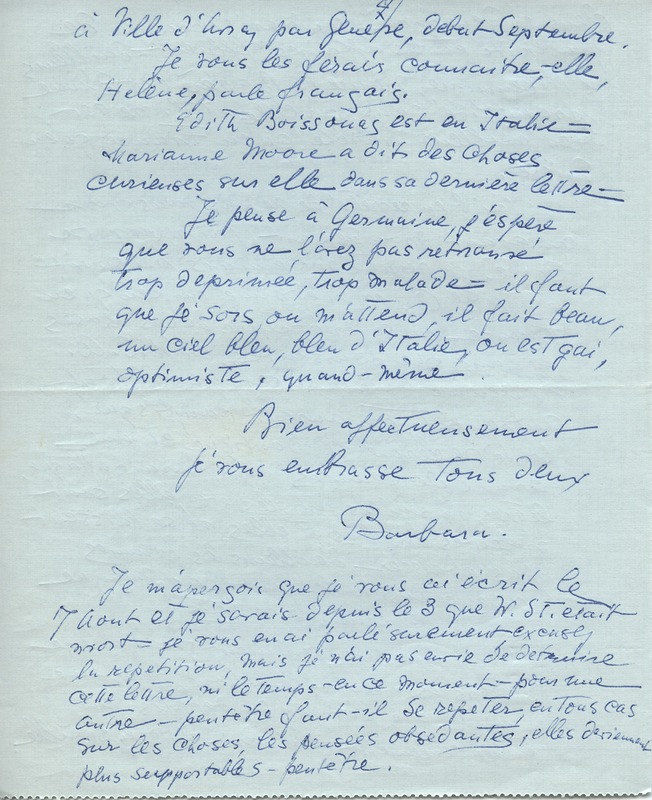 4/
à Ville d'Avray par Genève, debut Septembre.
Je vous les ferais connaitre, – elle,
Helène, parle français.
Edith Boissonas est en Italie –
Marianne Moore a dit des choses
curieuses sur elle dans sa dernière lettre –
Je pense à Germaine, j'espère
que vous ne l'avez pas retrouvé
trop deprimée, trop malade – il faut
que je sors on m'attend, il fait beau,
un ciel bleu, bleu d'Italie, on est gai,
optimiste, quand-même.
Bien affectueusement
je vous embrasse tous deux
Barbara.
Je m'aperçois que je vous ai écrit le
7 Aout et je savais depuis le 3 que W. St. etait
mort – je vous en ai parlé surement excusez
la repetition, mais je n'ai pas envie de detruire
cette lettre, ni le temps – en ce moment – pour une
autre – peutêtre faut-il se repeter, en tous cas
sur les choses, les pensées obsedantes, elles deviennent
plus supportables – peutêtre.